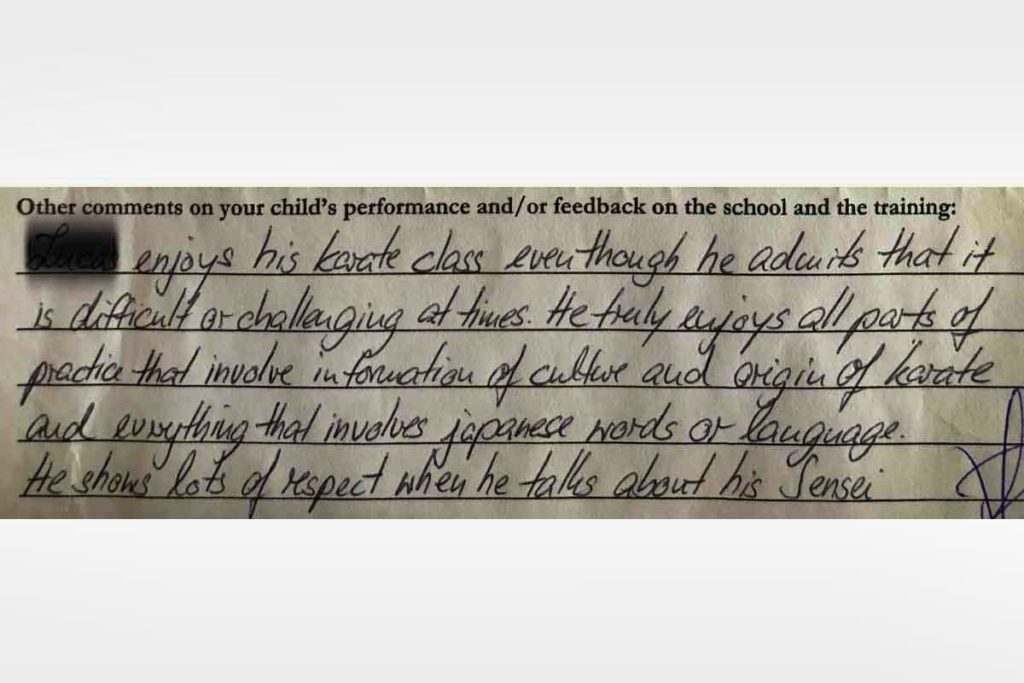 Other comments on your child's performance and/or feedback on the school and the training:
enjoys his karate class eventhough he admits that it
is difficult or challenging at times. He truly enjoys all parts of
practice that involve information of culture and origin of karate
and everything that involves japanese words or language.
He shows lots of respect when he talks about his Sensei